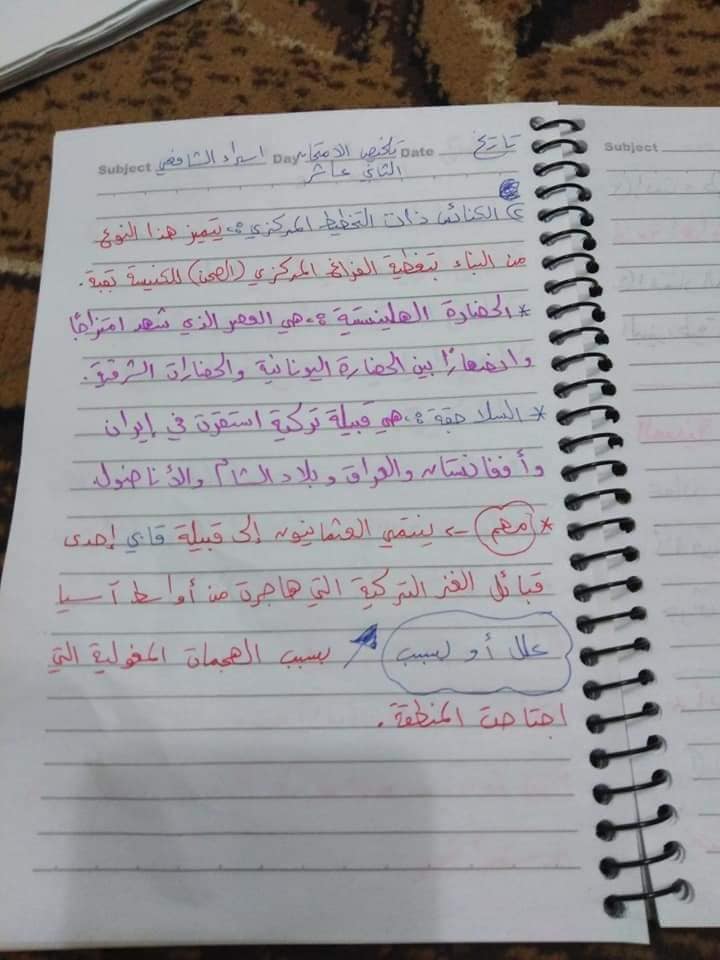 Subject اسراء الشافعي Day تلخيص الامتحان Date تاريخ
الثاني عشر
Subject
٢) الكنائس ذات التخطيط المركزي :- يتميز هذا النوع
من البناء بتغطية الفراغ المركزي (الصحن) للكنيسة بقبة .
* الحضارة الهلينستية :- هي العصر الذي شهد امتزاجًا
وانصهارًا بين الحضارة اليونانية والحضارات الشرقية .
* السلاجقة :- هي قبيلة تركية استقرت في إيران
وأفغانستان والعراق وبلاد الشام والأناضول
* مهم -> ينتمي العثمانيون إلى قبيلة قاي إحدى
قبائل الغز التركية التي هاجرت من أواسط آسيا
علل أو لسبب بسبب الهجمات المغولية التي
اجتاحت المنطقة .